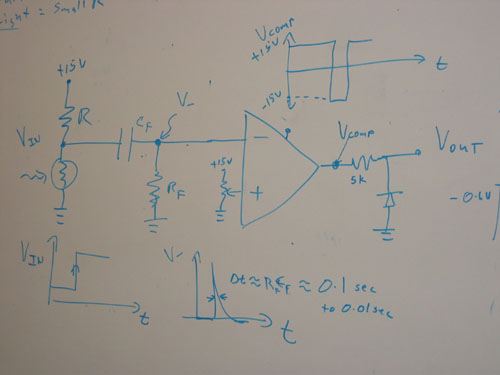 right = small R
VCOMP
+15V
-15V
t
+15V
R
VIN
CF
V-
RF
+15V
-
+
VCOMP
5k
VOUT
-0.6V
VIN
t
V-
Δt ≈ RFCF ≈ 0.1 sec
to 0.01sec
t